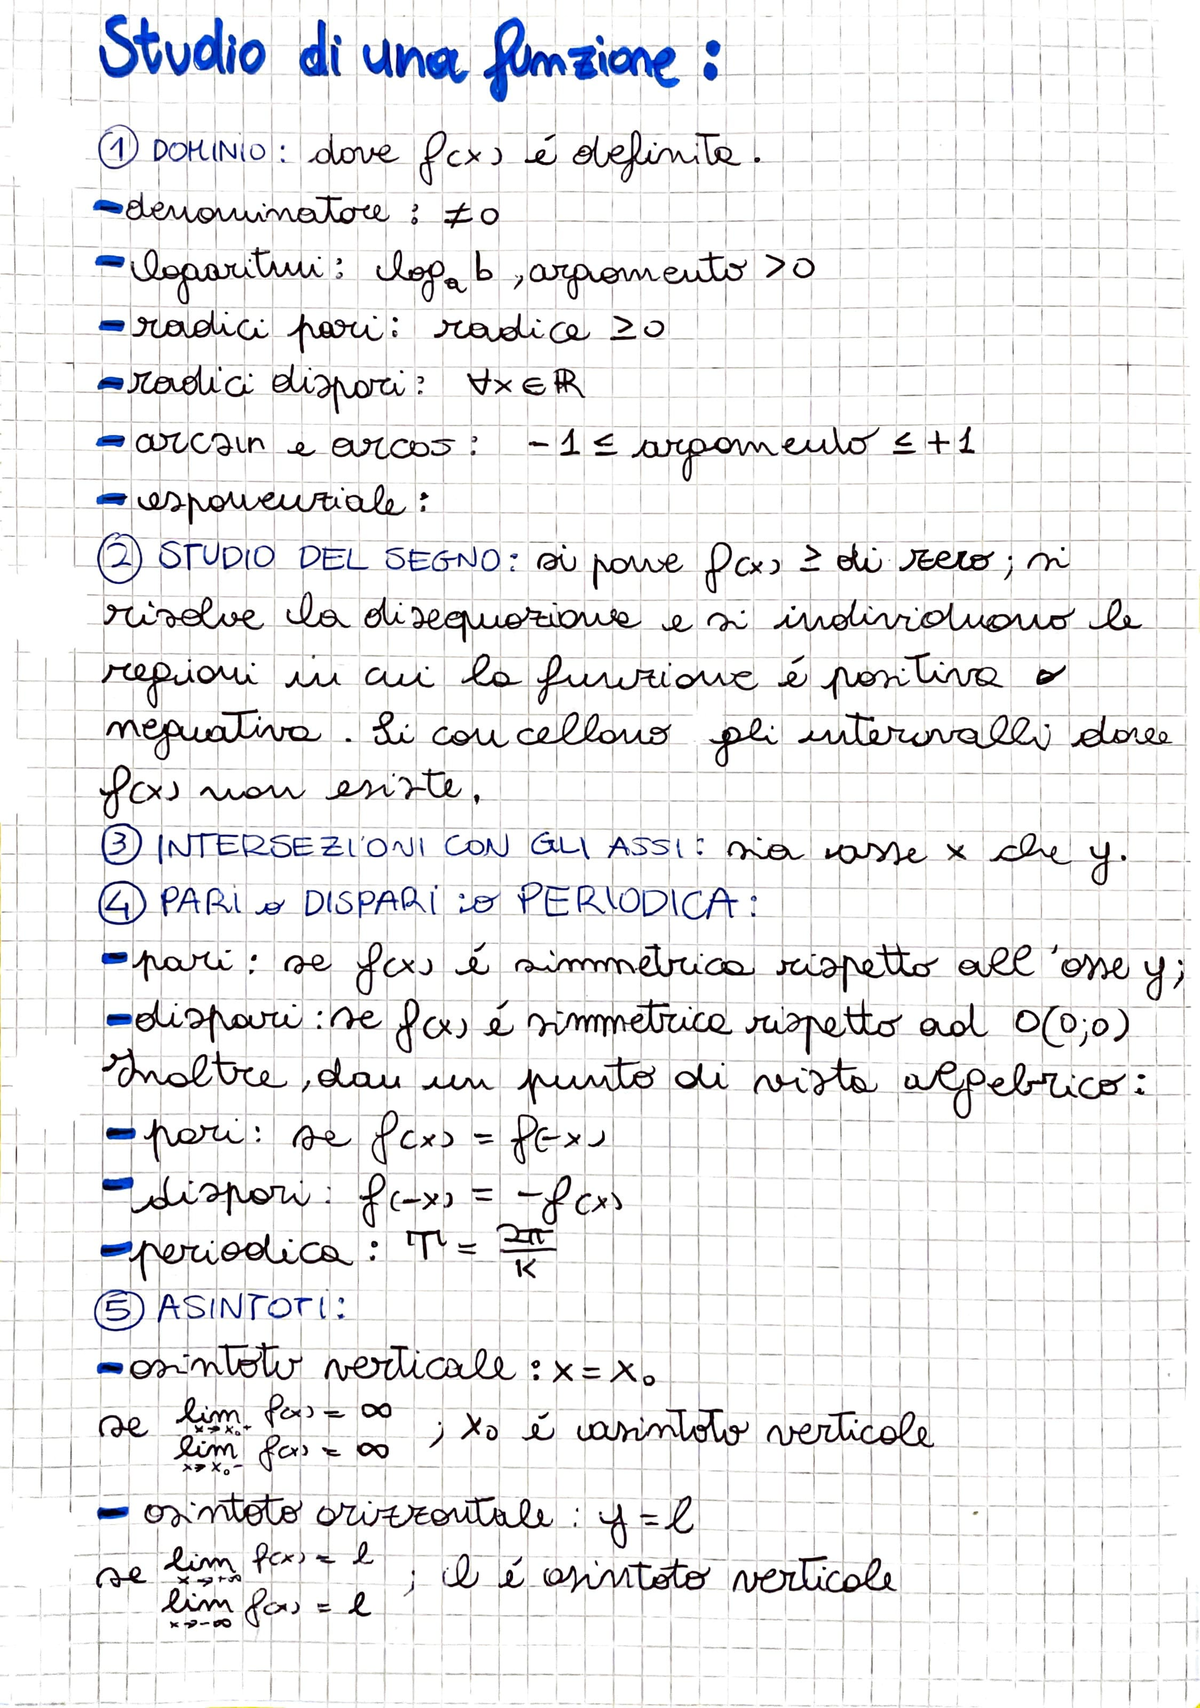 Studio di una funzione:
① DOMINIO: dove f(x) é definita.
- denominatore: ≠0
- logaritmi: logₐb, argomento >0
- radici pari: radice ≥0
- radici dispari: ∀x∈ℝ
- arcsin e arcos: -1 ≤ argomento ≤ +1
- esponenziale:
② STUDIO DEL SEGNO: si pone f(x) ≥ di zero; si
risolve la disequazione e si individuano le
regioni in cui la funzione é positiva o
neguativa. Si cancellano gli intervalli dove
f(x) non esiste.
③ INTERSEZIONI CON GLI ASSI: sia asse x che y.
④ PARI o DISPARI :o PERIODICA:
- pari: se f(x) é simmetrica rispetto all'asse y;
- dispari: se f(x) é simmetrica rispetto ad O(0;0)
Inoltre, dau un punto di vista algebrico:
- pari: se f(x) = f(-x)
- dispari: f(-x) = -f(x)
- periodica: T = 2π/K
⑤ ASINTOTI:
- asintoto verticale: x = x₀
se lim x→x₀⁺ f(x) = ∞ ; x₀ é asintoto verticale
lim x→x₀⁻ f(x) = ∞
- asintoto orizzontale: y = l
se lim x→+∞ f(x) = l ; l é asintoto verticale
lim x→-∞ f(x) = l